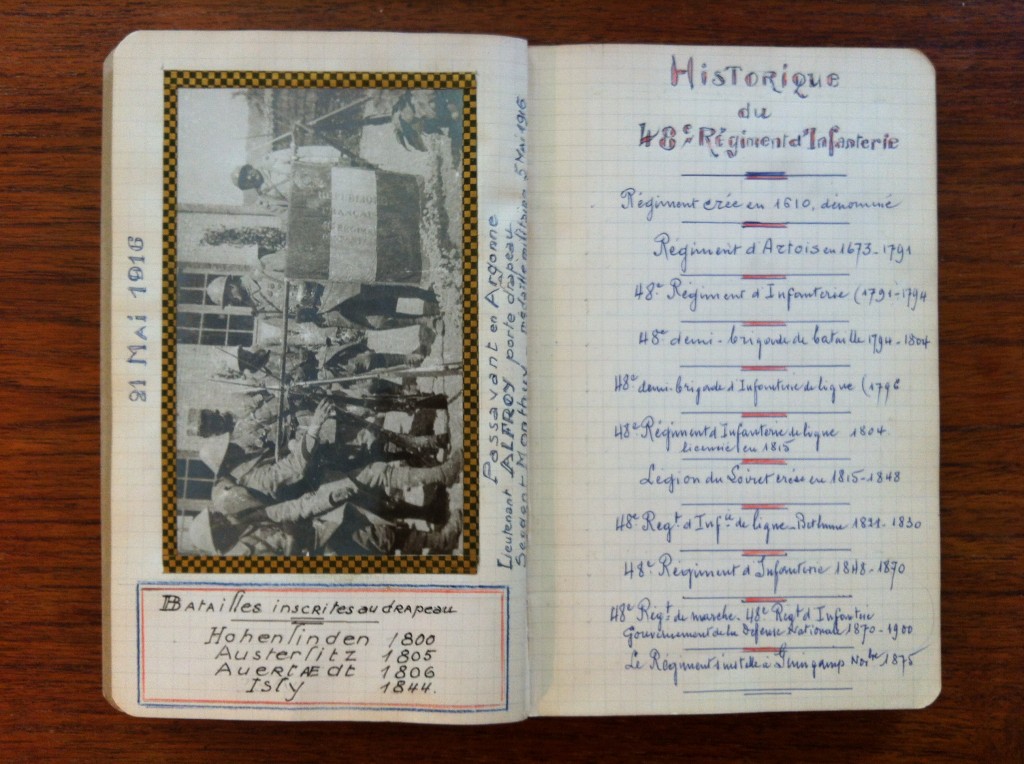 21 MAI 1916
RÉPUBLIQUE
FRANÇAISE
Passavant en Argonne
Lieutenant ALFROY porte drapeau
médaille militaire 5 Mai 1916
Batailles inscrites au drapeau
Hohenlinden 1800
Austerlitz 1805
Auerstædt 1806
Isly 1844.
Historique
du
48e Régiment d'Infanterie
Régiment crée en 1610, dénommé
Régiment d'Artois en 1673-1791
48e Régiment d'Infanterie (1791-1794
48e demi-brigade de bataille 1794-1804
48e demi-brigade d'Infanterie de ligne (1796
48e Régiment d'Infanterie de ligne 1804
licencié en 1815
Légion du Loiret créée en 1815-1848
48e Regt d'Infie de ligne - Bethune 1821-1830
48e Régiment d'Infanterie 1848-1870
48e Régt de marche. 48e Regt d'Infantrie
Gouvernement de la Défense Nationale 1870-1900
Le Régiment s'installe à Guingamp Novbre 1875